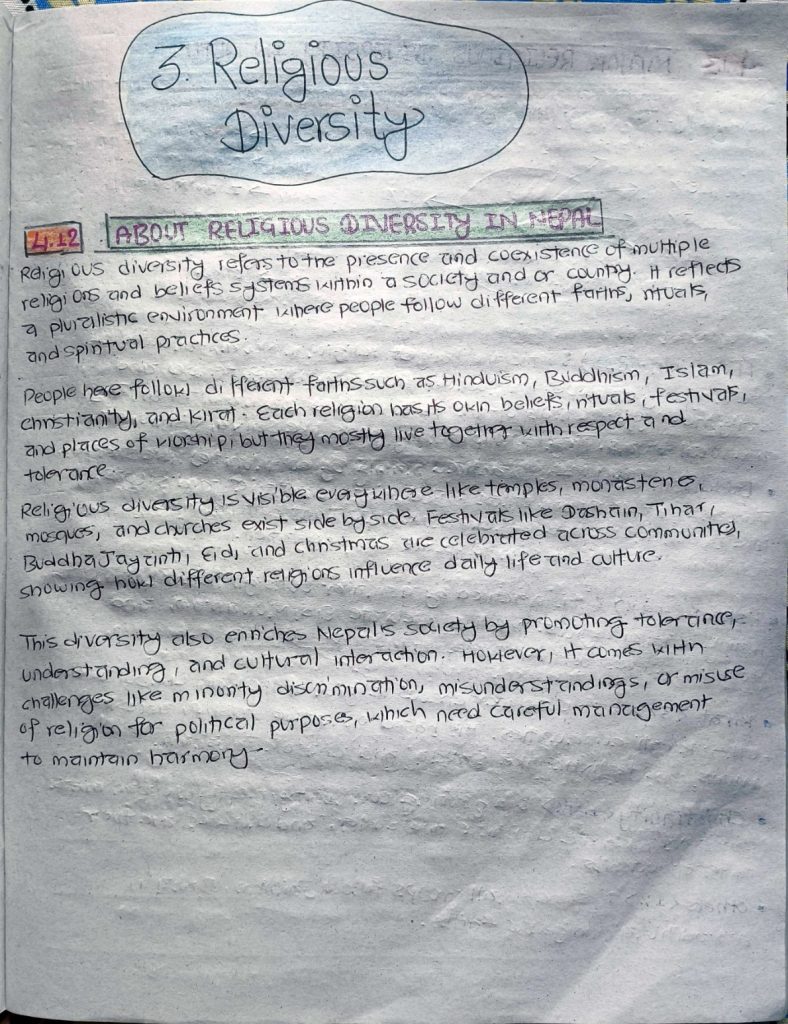 3. Religious
Diversity
4.12 ABOUT RELIGIOUS DIVERSITY IN NEPAL
Religious diversity refers to the presence and coexistence of multiple
religions and beliefs systems within a society and or country. It reflects
a pluralistic environment where people follow different faiths, rituals,
and spiritual practices.
People here follow different faiths such as Hinduism, Buddhism, Islam,
christianity, and Kirat. Each religion has its own beliefs, rituals, festivals,
and places of worship, but they mostly live together with respect and
tolerance.
Religious diversity is visible everywhere like temples, monasteries,
mosques, and churches exist side by side. Festivals like Dashain, Tihar,
Buddha Jayanti, Eid, and christmas are celebrated across communities,
showing how different religions influence daily life and culture.
This diversity also enriches Nepal's society by promoting tolerance,
understanding, and cultural interaction. However, it comes with
challenges like minority discrimination, misunderstandings, or misuse
of religion for political purposes, which need careful management
to maintain harmony.